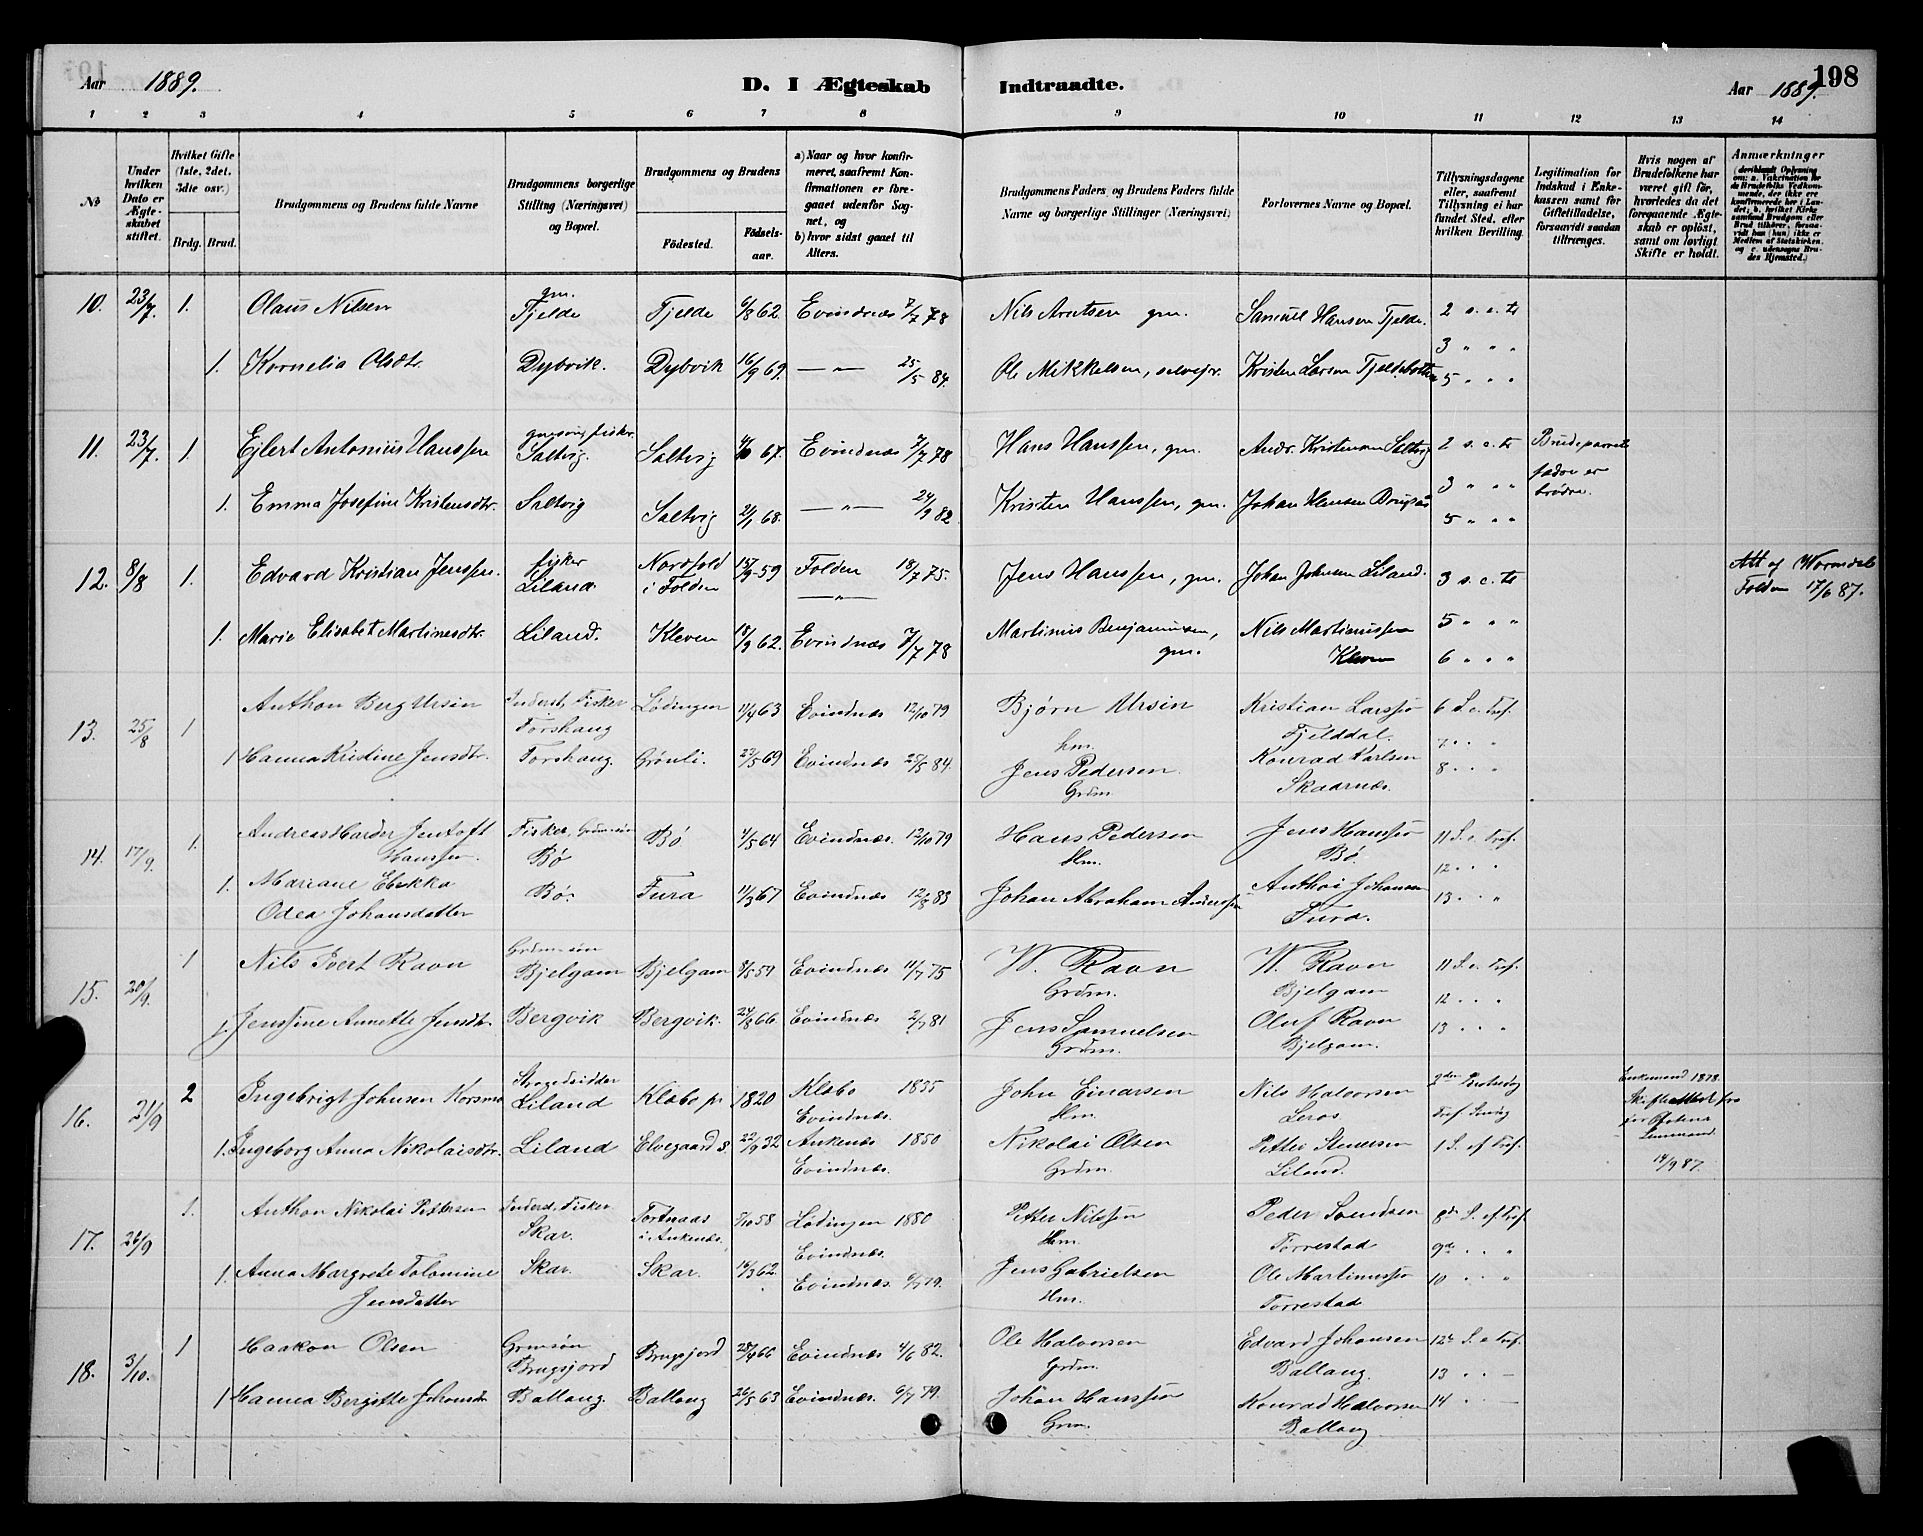 Aar 1889.
D. I Ægteskab Indtraadte.
Aar 1889.
198
1 2 3 4 5 6 7 8 9 10 11 12 13 14
No
Under hvilken Dato er Ægteskabet stiftet.
Hvilket Gifte (1ste, 2det, 3die osv.)
Brdg. Brud.
Brudgommens og Brudens fulde Navne
Brudgommens borgerlige Stilling (Næringsvei) og Bopæl.
Brudgommens og Brudens
Fødested. Fødselsaar.
a) Naar og hvor konfirmeret, saafremt Konfirmationen er foregaaet udenfor Sognet, og
b) hvor sidst gaaet til Alters.
Brudgommens Faders og Brudens Faders fulde Navne og borgerlige Stillinger (Næringsvei)
Forlovernes Navne og Bopæl.
Tillysningsdagene eller, saafremt Tillysning ei har fundet Sted, efter hvilken Bevilling.
Legitimation for Indskud i Enkekassen samt for Giftetilladelse, forsaavidt saadan tiltrænges.
Hvis nogen af Brudefolkene har været gift før, hvorledes da det foregaaende Ægteskab er opløst, samt om lovligt Skifte er holdt.
Anmærkninger
10. 23/7. 1. Olaus Nilsen gm. Tjelde Tjelde 6/8 62. Evindnæs 7/7 78 Nils Arntsen gm. Samuel Hansen Tjelde. 2 s. e. tr
3 " " "
1. Kornelia Olsdtr. Dybvik. Dybvik 16/9 69. — " — 25/5 84. Ole Mikkelsen, selvejer. Kristen Larsen Tjeldebotten 5 " " "
11. 23/7. 1 Ejlert Antonius Hanssen Saltvig. Saltvig 67. Evindnæs 7/7 78 Hans Hanssen, gm. Andr. Kristensen Saltvig 2 s. e. tr Brudeparrets
fædre er
3 " " " brødre.
1. Emma Josefine Kristensdtr. Saltvig Saltvig 2/1 68. — " — 24/9 82. Kristen Hanssen, gm. Johan Hansen 5 " " "
12. 8/8 1. Edvard Kristian Jenssen. fisker Liland Nordfold i Folden 15/9 59 Folden 18/7 75. — " — Jens Hanssen, gm. Johan Johnsen Liland. 3 s. e. tr Att af
Folden 17/6 87.
1. Marie Elisabet Martinesdtr. Liland. Kleven 18/9 62. Evindnæs 7/7 78 Martinus Benjaminsen, gm. Nils Martinussen Kleven 5 " " "
6 " " "
13. 25/8 1 Anthon Berg Ursin Inderst, Fisker Forshaug Lødingen 11/4 63 Evindnæs 12/10 79 Bjørn Ursin hm. Kristian Larssen Fjelddal. 6 S. e. Tref.
7 . . "
1 Hanna Kristine Jensdtr. Forshaug. Grønli. 23/5 69 Evindnæs 25/5 84. Jens Pedersen Grdm. Konrad Karlsen Skaarnæs. 8 . . "
14. 17/9. 1. Andreas Harder Jentoft Hanssen. Fisker, Grdm.søn Bø Bø 4/5 64 Evindnæs. 12/10 79 Hans Pedersen Hm. Jens Hanssen Bø 11 S. e. Tref.
12 . . "
1. Mariane Ebekka Odea Johansdatter Bø. Fura 11/3 67 Evindnæs 12/8 83 Johan Abraham Anderssen Anthoi Johansen Fura. 13 . . "
15. 20/9. 1 Nils Evert Ravn Grdm.søn Bjelgam Bjelgam 8/5 59 Evindnæs 11/7 75 W. Ravn Grdm. W. Ravn Bjelgam 11 S. e. Tref.
12 . . "
1. Jenssine Annette Jensdtr. Bergvik Bergvik. 24/8 66 Evindnæs 2/7 81 Jens Samuelsen Grdm. Oluf Ravn Bjelgam. 13 . . "
16. 21/9 2 Ingebrigt Johnsen Korsmo Liland Klæbo pr 1820 Klæbo 1835 Evindnæs. John Einarsen Hm. Nils Halvorsen Leros Enkemand 1878.
14/9 87.
1. Ingeborg Anna Nikolaisdtr. Liland Elvegaard S. 22/9 32 Ankenæs 1850 Evindnæs. Nikolai Olsen Grdm. Petter Stenersen Liland. 1 S. ef Tref.
17. 26/9 1. Anthon Nikolai Pettersen Inderst, Fisker Skar. i Ankenæs. 5/10 58 Lødingen 1880 Evindnæs Petter Nilssen Hm. Peder Svendsen Torrestad 8de S. ef Tref.
9de . . "
1. Anna Margrete Tolomine Jensdatter Skar. Skar. 16/3 62. Evindnæs. 6/7 79. Jens Gabrielsen Hm. Ole Martinussen Torrestad 10 . . "
18. 3/10. 1 Haakon Olsen Grmsøn Brugsjord Brugsjord 66 Evindnæs 4/6 82. Ole Halvorsen Grdm. Edvard Johansen Ballang. 12te S. e Tref.
13 . . —
1 Hanna Bergitte Johansdtr Ballang. Ballang 26/5 63 Evindnæs. 6/7 79. Johan Hanssen Grm. Konrad Halvorsen Ballang 14 . —